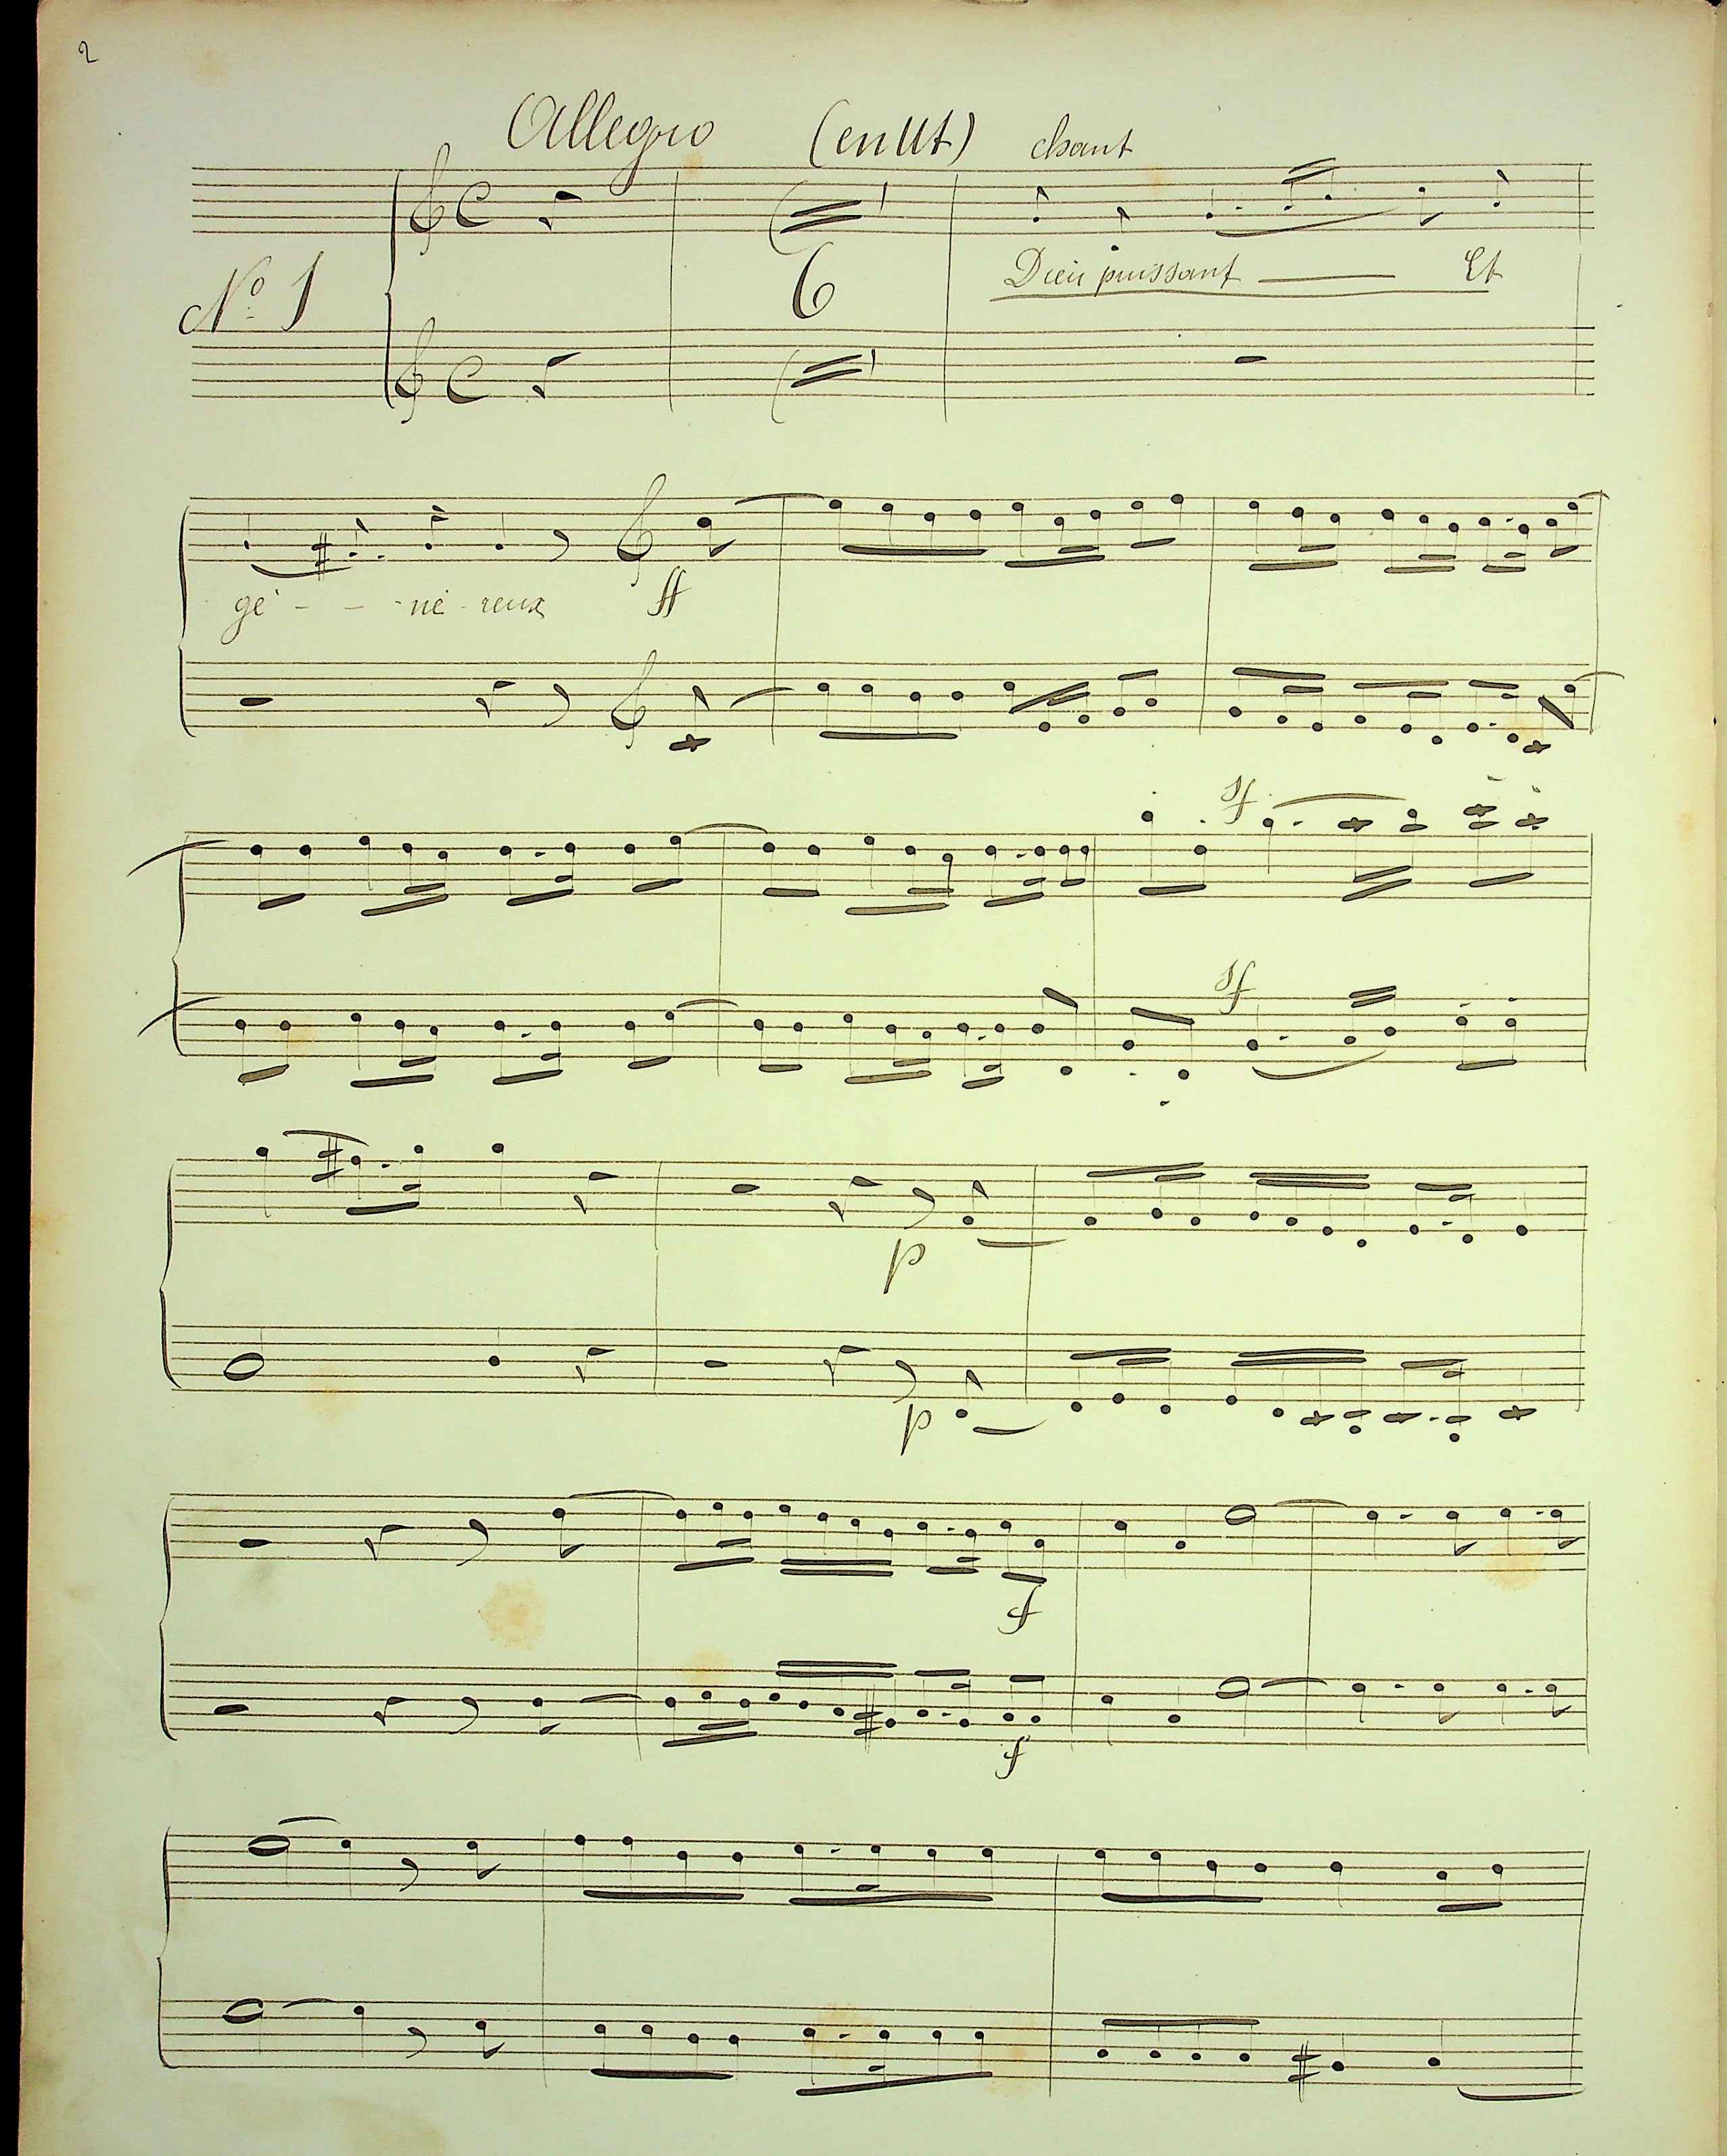 2
Allegro (en Ut) chant
6
Dieu puissant — Et
No. 1
gé - - - né - reux ff
sf
sf
p
p
f
f